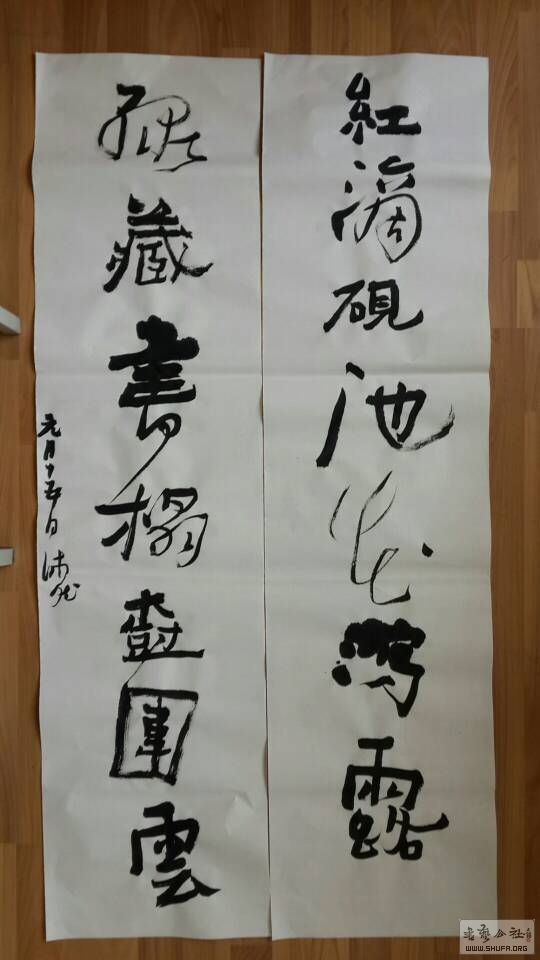 紅滴硯池花瀉露
綠藏書榻樹團雲
元月十五日
书艺公社
WWW.SHUFA.ORG